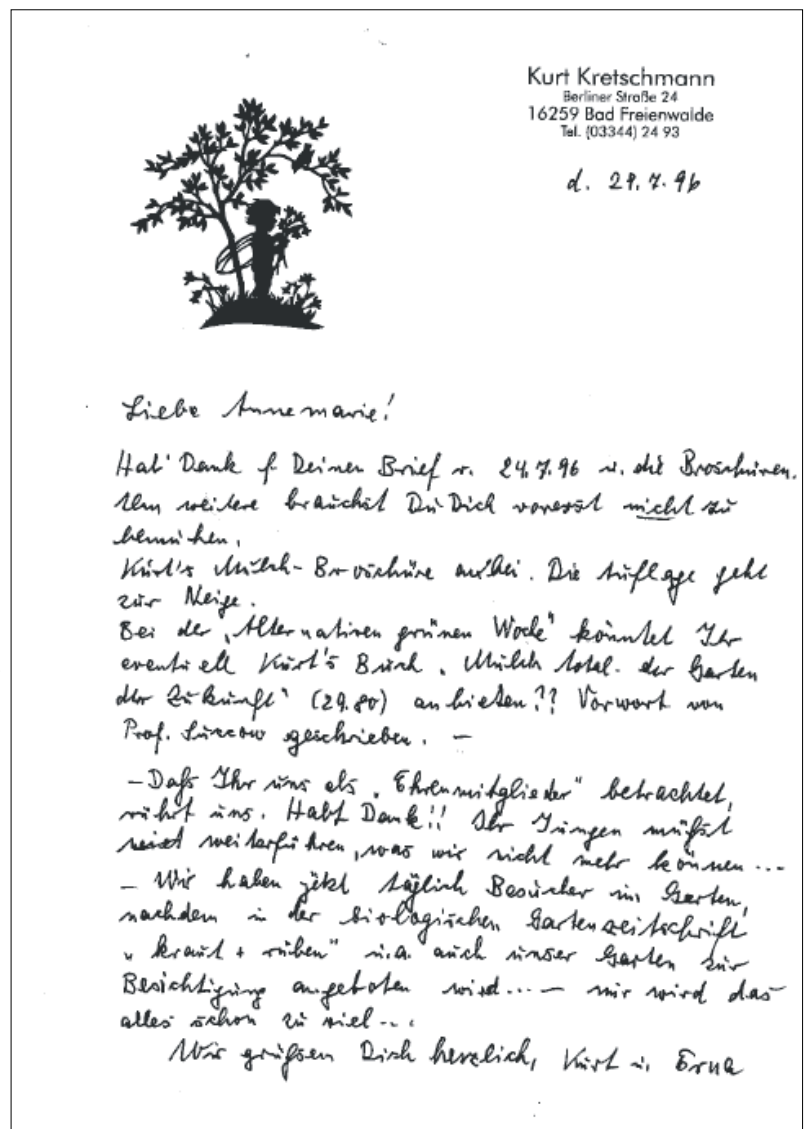 Kurt Kretschmann
Berliner Straße 24
16259 Bad Freienwalde
Tel. (03344) 24 93
d. 29.7.96
Liebe Annemarie!
Hab' Dank f. Deinen Brief v. 24.7.96 u. die Broschüren.
Um weitere brauchst Du Dich vorerst nicht zu
bemühen.
Kurt's Mulch-Broschüre anbei. Die Auflage geht
zur Neige.
Bei der „Alternativen grünen Woche" könntet Ihr
eventuell Kurt's Buch „Mulch total - der Garten
der Zukunft" (29.80) anbieten?? Vorwort von
Prof. Succow geschrieben. –
– Daß Ihr uns als „Ehrenmitglieder" betrachtet,
rührt uns. Habt Dank!! Ihr Jungen müßt
weiterführen, was wir nicht mehr können...
– Wir haben jetzt täglich Besucher im Garten,
nachdem in der biologischen Gartenzeitschrift
„kraut + rüben" u.a. auch unser Garten zur
Besichtigung angeboten wird... – mir wird das
alles schon zu viel...
Wir grüßen Dich herzlich, Kurt u. Erna